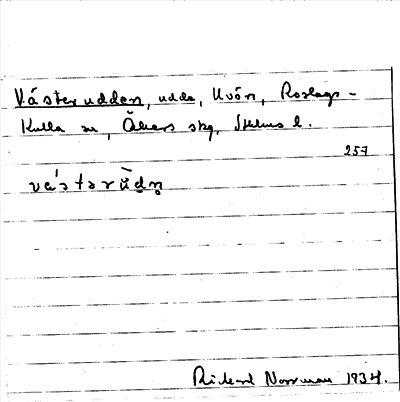 Västerudden, udde, Uvön, Roslags-
Kulla sn, Åkers skg, Sthlms l.
257
västərùdn̥
Rickard Norrman 1934.